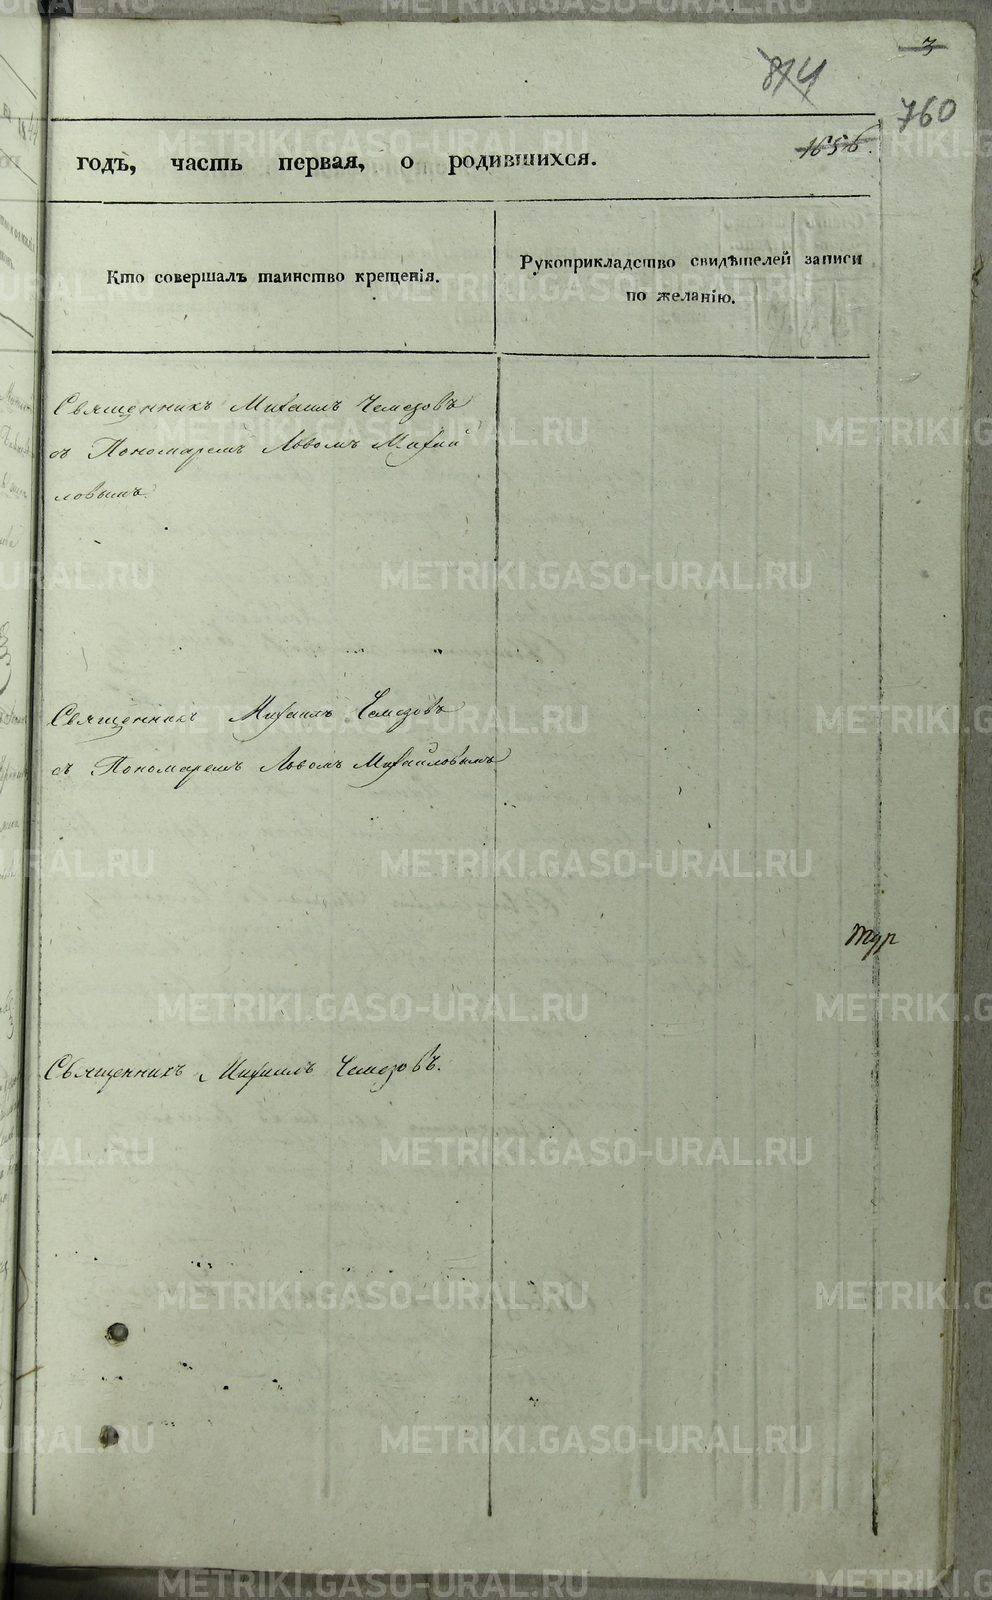 3
814
760
1656.
годъ, часть первая, о родившихся.
Кто совершалъ таинство крещенія.
Рукоприкладство свидѣтелей записи
по желанію.
Священникъ Михаилъ Чемезовъ
съ Пономаремъ Львомъ Михай
ловымъ.
Священникъ Михаилъ Чемезовъ
съ Пономаремъ Львомъ Михайловымъ
Священникъ Михаилъ Чемезовъ.
METRIKI.GASO-URAL.RU